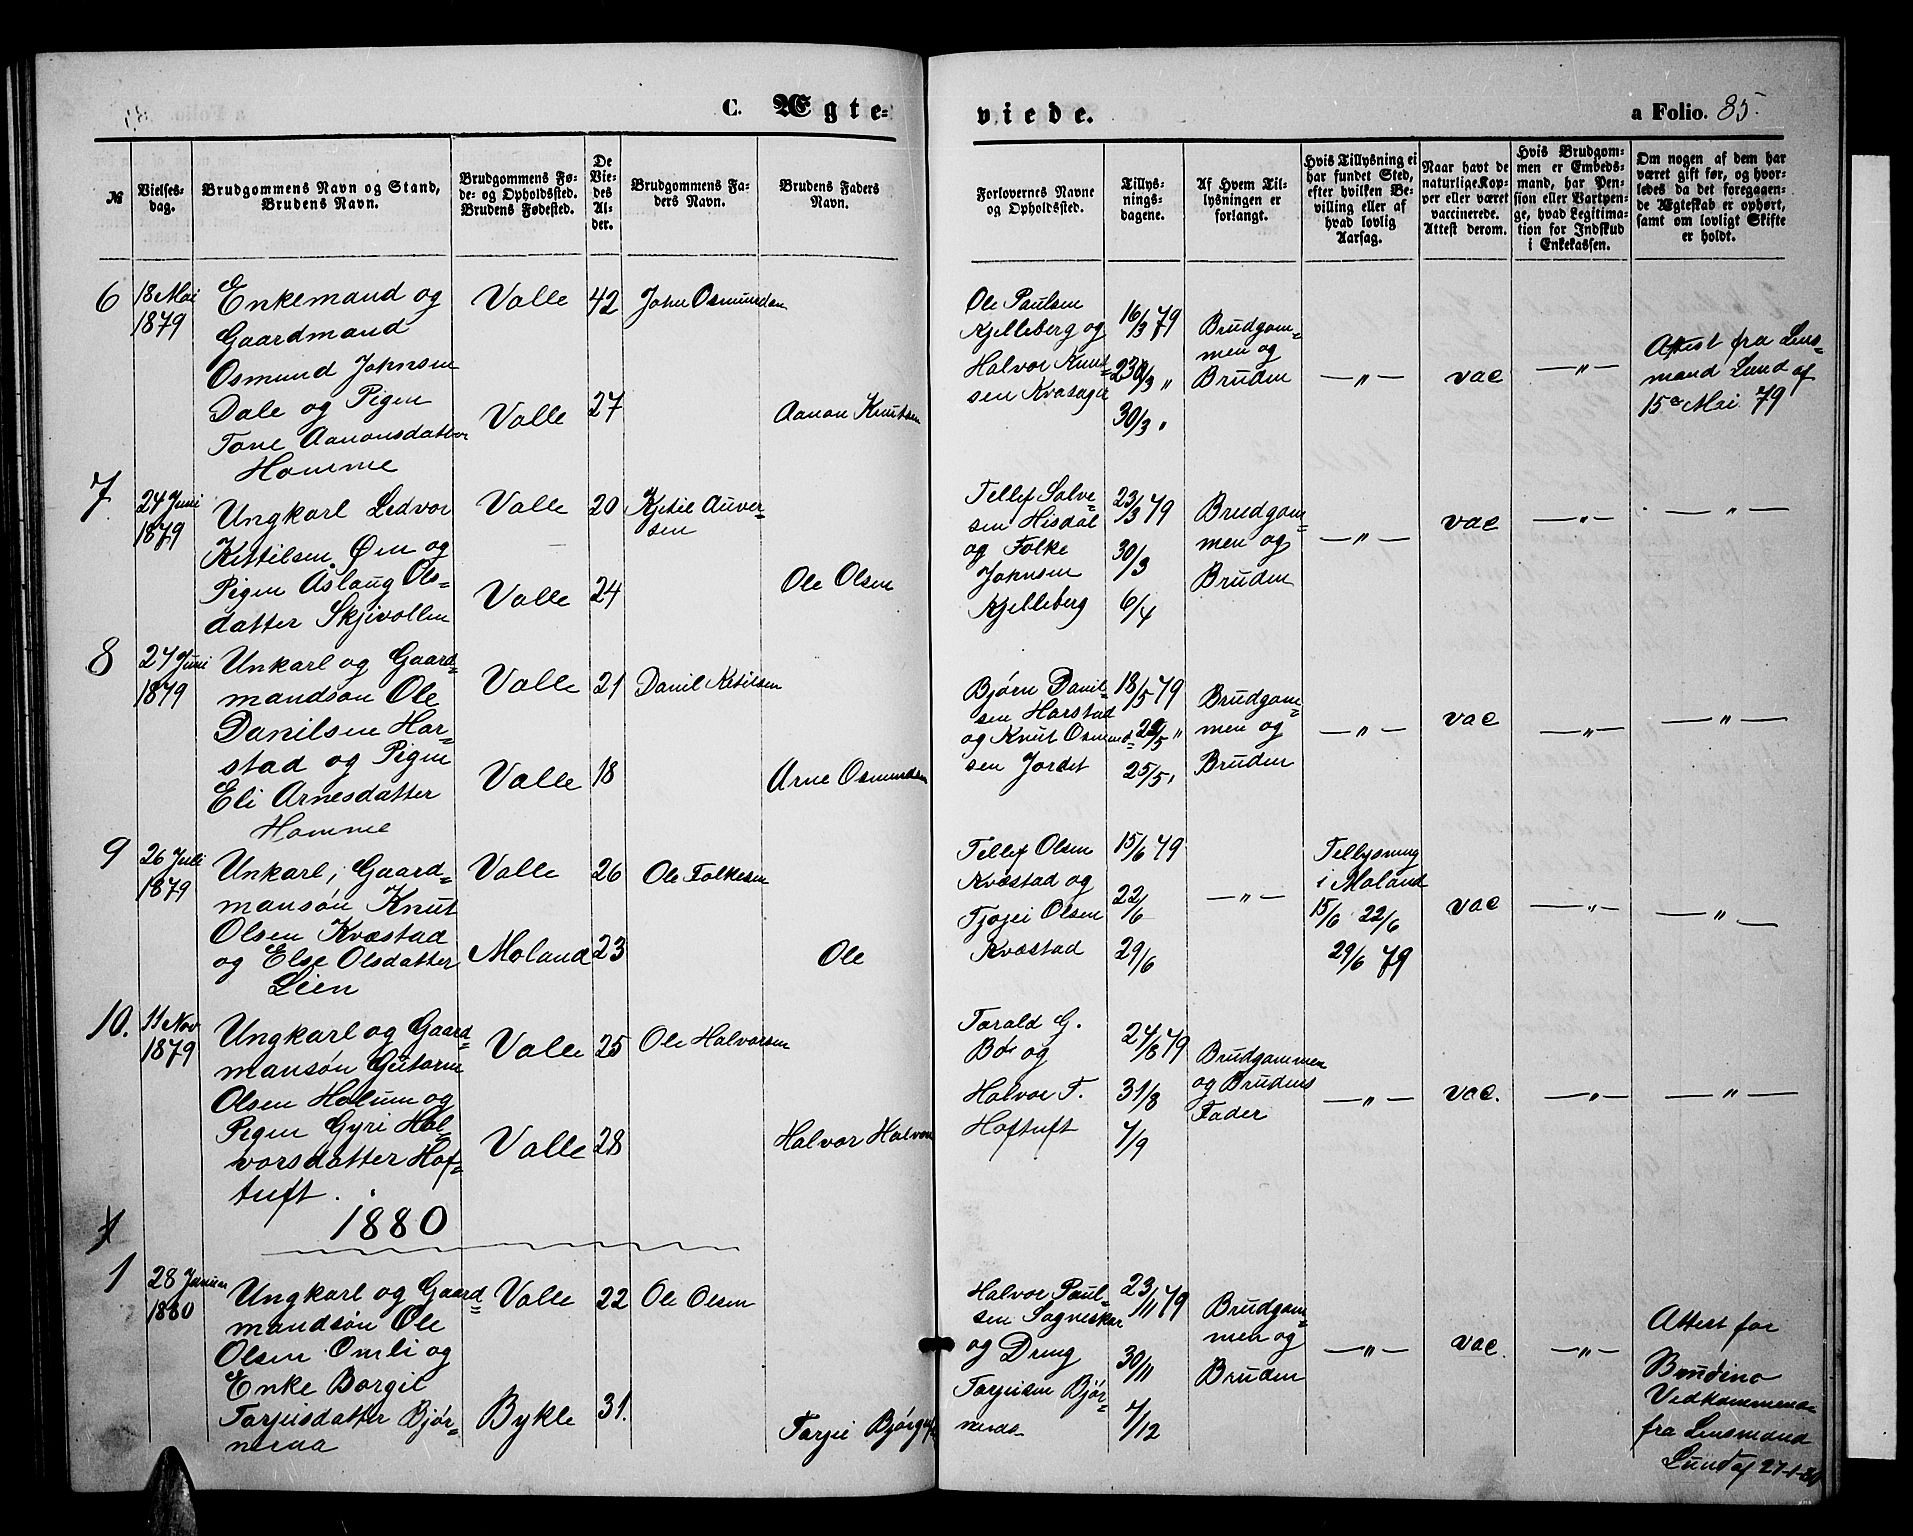 C. Ægte=
viede.
a Folio. 85.
№
Vielses-
dag.
Brudgommens Navn og Stand,
Brudens Navn.
Brudgommens Fø-
de- og Opholdssted.
Brudens Fødested.
De
Vie-
des
Al-
der.
Brudgommens Fa-
ders Navn.
Brudens Faders
Navn.
Forlovernes Navne
og Opholdssted.
Tillys-
nings-
dagene.
Af Hvem Til-
lysningen er
forlangt.
Hvis Tillysning ei
har fundet Sted,
efter hvilken Be-
villing eller af
hvad lovlig
Aarsag.
Naar havt de
naturlige Kop-
per eller været
vaccinerede.
Attest derom.
Hvis Brudgom-
men er Embeds-
mand, har Pen-
sion eller Vartpen-
ge, hvad Legitima-
tion for Indskud
i Enkekassen.
Om nogen af dem har
været gift før, og hvor-
ledes da det foregaaen-
de Ægteskab er ophørt,
samt om lovligt Skifte
er holdt.
6
18 Mai
1879
Enkemand og
Gaardmand
Osmund Johnsen
Dale og Pigen
Tone Aanonsdatter
Homme
Valle
Valle
42
27
John Osmundsen
Aanon Knutsen
Ole Paulsen
Kjelleberg og
Halvor Knut=
sen Kvasager
16/3 79
23/3 "
30/3 "
Brudgom=
men og
Bruden
— " —
vac
— " —
Attest fra Lens=
mand Lund af
15de Mai 79
7
24 Juni
1879
Ungkarl Ledvor
Kittilsen Øen og
Pigen Aslaug Ols=
datter Skjevollen
Valle
Valle
20
24
Kjetil Auver=
sen
Ole Olsen
Tellef Salve=
sen Hisdal
og Folke
Johnsen
Kjelleberg
23/3 79
30/3
6/4
Brudgom=
men og
Bruden
— " —
vac
— " —
— " —
8
24 Juni
1879
Unkarl og Gaard=
mandsøn Ole
Danilsen Har=
stad og Pigen
Eli Arnesdatter
Homme
Valle
Valle
21
18
Danil Ketilsen
Arne Osmundsen
Bjørn Danil=
sen Harstad
og Knut Osmund=
sen Jordet
18/5 79
22/5 "
25/5 "
Brudgom=
men og
Bruden
— " —
vac
— " —
— " —
9
26 Juli
1879
Unkarl, Gaard=
mansøn Knut
Olsen Kvæstad
og Else Olsdatter
Lien
Valle
Moland
26
23
Ole Folkesen
Ole
Tellef Olsen
Kvæstad og
Tjøgei Olsen
Kvæstad
15/6 79
22/6
29/6
— " —
Tellysning
i Moland
15/6 22/6
29/6 79
vac
— " —
— " —
10.
11 Nov
1879
Ungkarl og Gaard=
mansøn Gutorm
Olsen Holum og
Pigen Gyri Hal=
vorsdatter Hof=
tuft.
Valle
Valle
25
28
Ole Halvorsen
Halvor Halvors
Torald G.
Bø og
Halvor T.
Hoftuft
24/8 79
31/8
7/9
Brudgommen
og Brudens
Fader
— " —
vac.
— " —
— " —
1880
1
28 Januar
1880
Ungkarl og Gaard=
mandsøn Ole
Olsen Omli og
Enke Borgil
Torjusdatter Bjør=
neraa
Valle
Bykle
22
31.
Ole Olsen
Torjei Bjørgufs
Halvor Paul=
sen Sagneskar
og Dreng
Torjeisen Bjør=
neraa
23/11 79
30/11
7/12
Brudgom=
men og
Bruden
— " —
vac.
— " —
Attest for
Brudens
Vedkommende
fra Lensmand
Lund af 27-1-80